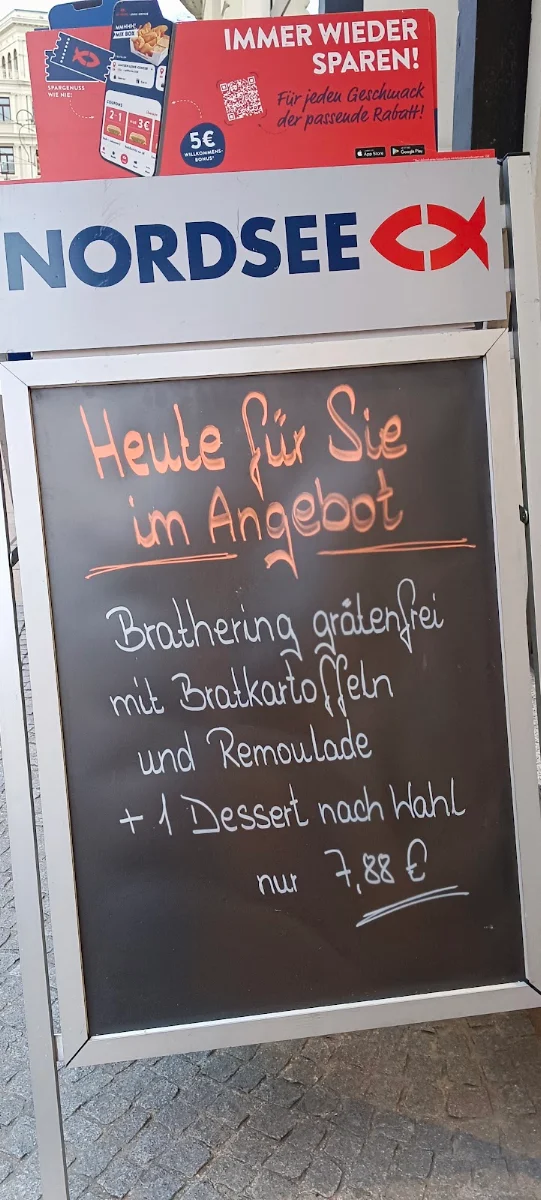 IMMER WIEDER
SPAREN!
Für jeden Geschmack
der passende Rabatt!
SPARGENUSS
WIE NIE:
5€
WILLKOMMENS-
BONUS*
COUPONS
2 1
3€
App Store
Google Play
NORDSEE
Heute für Sie
im Angebot
Brathering gråtenfrei
mit Bratkartoffeln
und Remoulade
+ 1 Dessert nach Wahl
nur 7,88 €